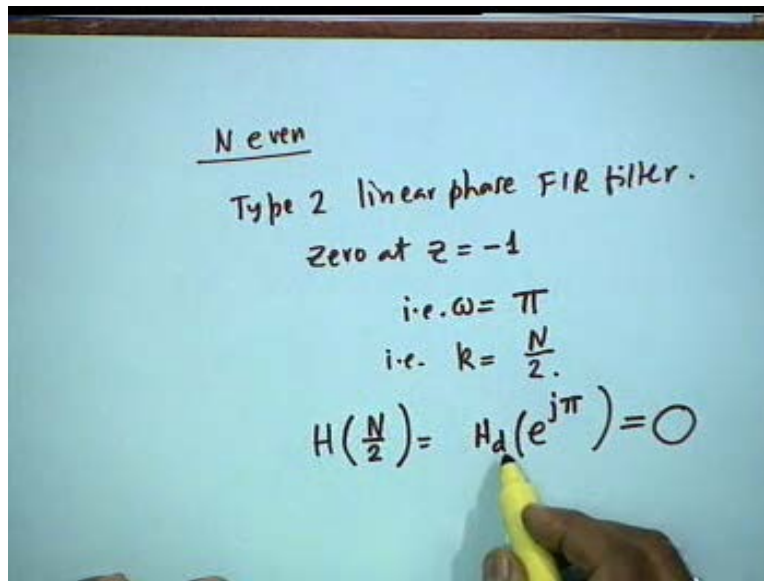 N even
Type 2 linear phase FIR filter.
zero at z = -1
i.e. ω = π
i.e. k = N/2.
H(N/2) = H_d(e^{jπ}) = 0